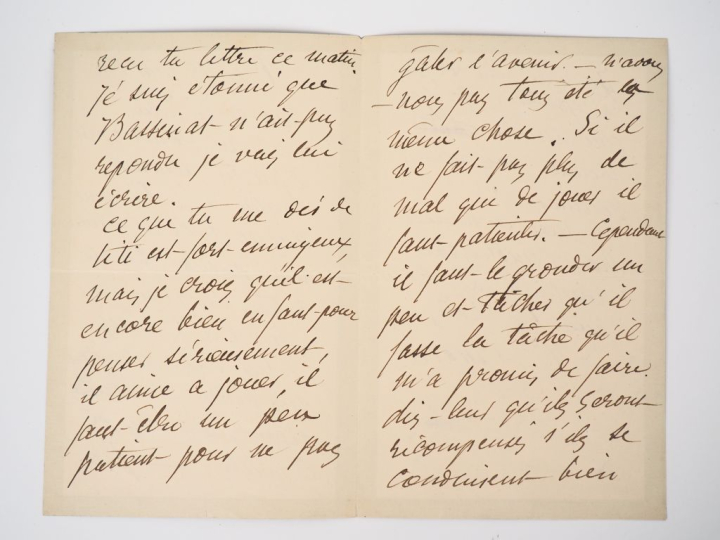 recu ta lettre ce matin
Je suis étonné que
Bassinat n'ait pas
repondu je vais lui
écrire.
ce que tu me dis de
titi est fort ennuyeux
mais je crois qu'il est
encore bien enfant pour
penser sérieusement,
il aime a jouer, il
faut être un peu
patient pour ne pas
gâter l'avenir. — n'avons
— nous pas tous été la
même chose. Si il
ne fait pas plus de
mal que de jouer il
faut patienter. — Cependant
il faut le gronder un
peu et tâcher qu'il
fasse la tâche qu'il
m'a promis de faire.
dis-leur qu'ils seront
récompensés s'ils se
conduisent bien